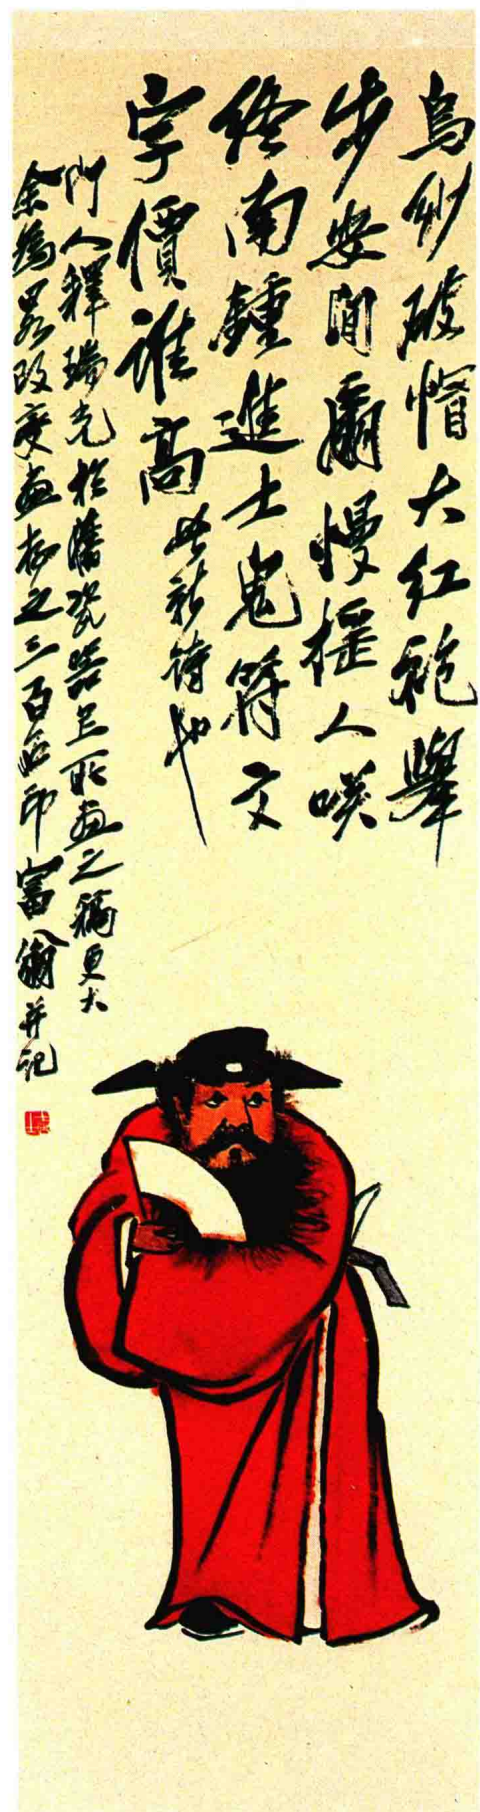 烏紗破帽大紅袍舉
步安閒扇慢搖人咲
終南鍾進士鬼符文
字價誰高 此新詩也
門人釋瑞光於舊瓷器上所畫之稿更大
余為畧改變畫存之三百石印富翁并記